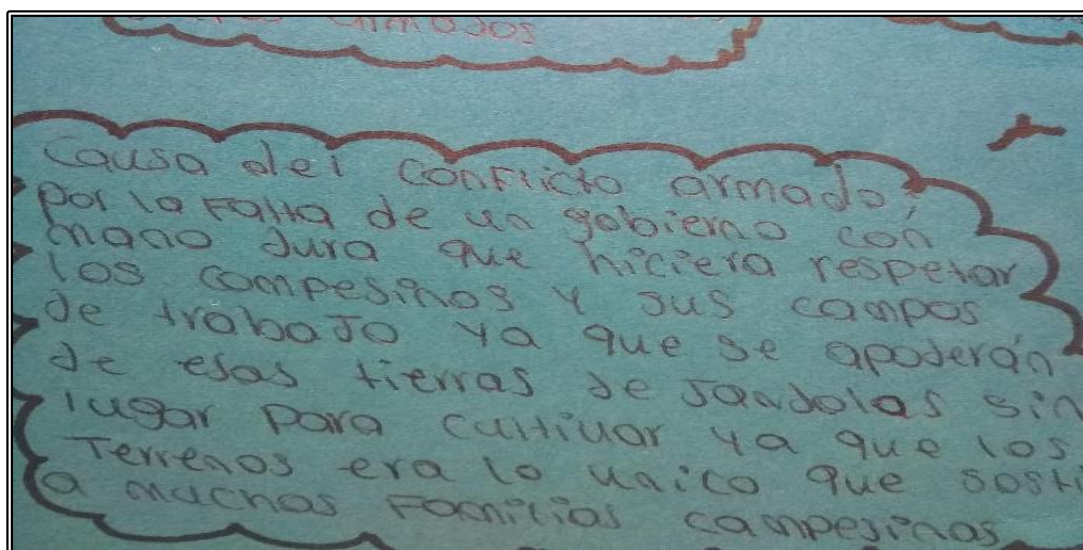 armados
Causa del Conflicto armado,
por la Falta de un gobierno con
mano dura que hiciera respetar
los campesinos y sus campos
de trabajo ya que se apoderán
de esas tierras de Jandolas sin
lugar para cultivar ya que los
Terrenos era lo unico que sosti
a muchas Familias campesinas